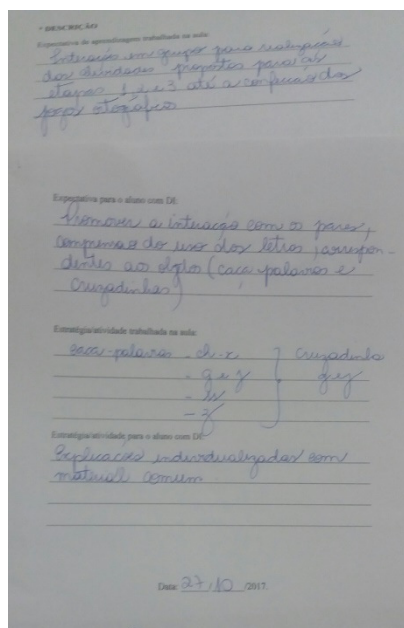 * DESCRIÇÃO
Expectativa de aprendizagem trabalhada na aula:
Interação em grupos para realização
das atividades propostas para as
etapas 1, 2 e 3 até a confecção dos
jogos otográficos
Expectativa para o aluno com DI:
Promover a interação com os pares,
compreensão do uso das letras, correspon-
dentes aos (caça-palavras e
cruzadinhas)
Estratégia/atividade trabalhada na aula:
caça-palavras - ch - x Cruzadinha
- g e j g e j
- z
Estratégia/atividade para o aluno com DI:
Explicações individualizadas com
material comum.
Data: 27/10/2017.